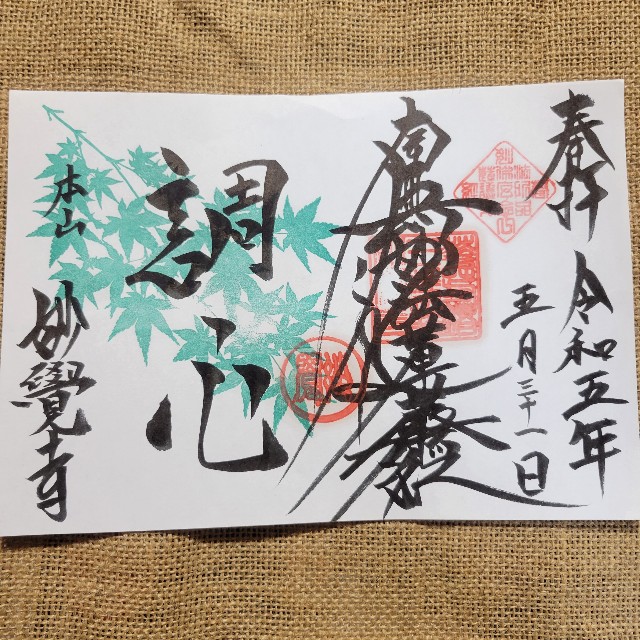 奉拝
令和五年
五月三十一日
南無妙法蓮華経
調心
本山
妙覺寺